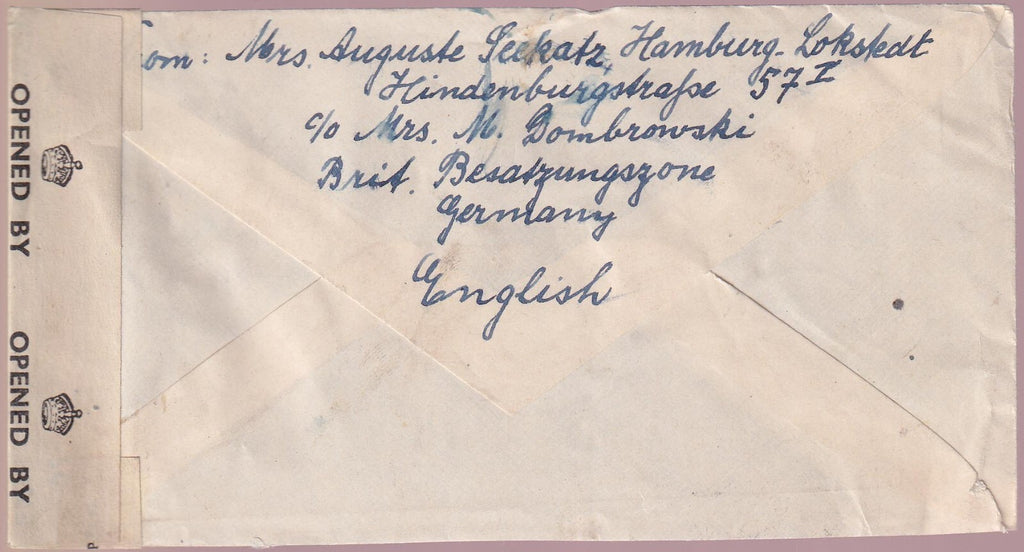 From: Mrs. Auguste Seekatz, Hamburg-Lokstedt
Hindenburgstraße 57 I
c/o Mrs. M. Dombrowski
Brit. Besatzungszone
Germany
English
OPENED BY
OPENED BY
P